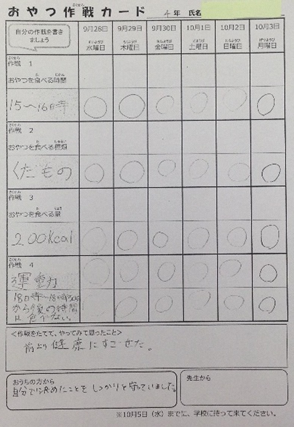 おやつ作戦カード 4年 氏名
自分の作戦を書きましょう
9月28日 水曜日 9月29日 木曜日 9月30日 金曜日 10月1日 土曜日 10月2日 日曜日 10月3日 月曜日
作戦 1
おやつを食べる時間
15〜16時 ○ ○ ○ ○ ○ ○
作戦 2
おやつを食べる種類
くだもの ○ ○ ○ ○ ○ ○
作戦 3
おやつを食べる量
200kcal ○ ○ ○ ○ ○ ○
作戦 4
運動 ○ ○ ○ ○ ○ ○
18時
から後の時間
に食べない。 ○ ○ ○ ○ ○ ○
<作戦をたてて、やってみて思ったこと>
健康にすごせた。
おうちの方から
自分で決めたことをしっかりと守っていました。
先生から
※10月5日(水)までに、学校に持って来てください。